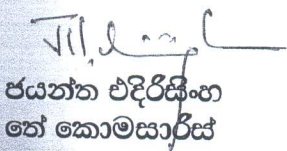 ජයන්ත එදිරිසිංහ
තේ කොමසාරිස්